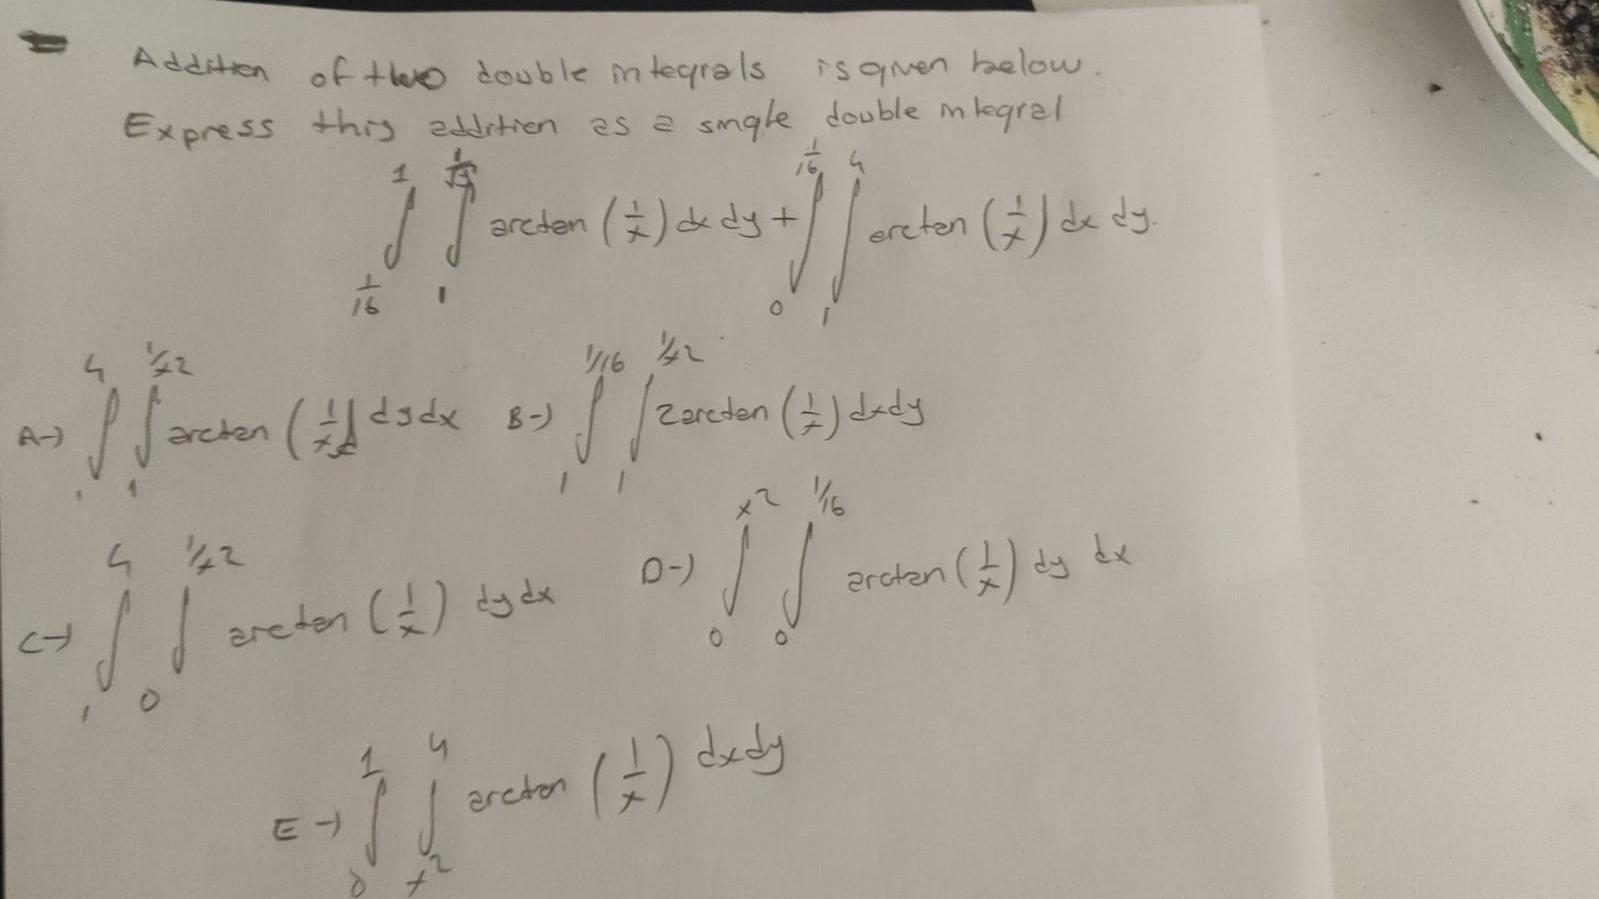 Addition of two double integrals is given below.
Express this addition as a single double integral
∫_{1/16}^{1} ∫_{1}^{1/√y} arctan (1/x) dx dy + ∫_{0}^{1/16} ∫_{1}^{4} arctan (1/x) dx dy.
A-) ∫_{1}^{4} ∫_{1}^{1/x2} arctan (1/x) dy dx B-) ∫_{1}^{1/16} ∫_{1}^{1/x2} 2arctan (1/x) dx dy
C-) ∫_{1}^{4} ∫_{0}^{1/x2} arctan (1/x) dy dx D-) ∫_{0}^{x^2} ∫_{0}^{1/16} arctan (1/x) dy dx
E-) ∫_{0}^{1} ∫_{x^2}^{4} arctan (1/x) dx dy